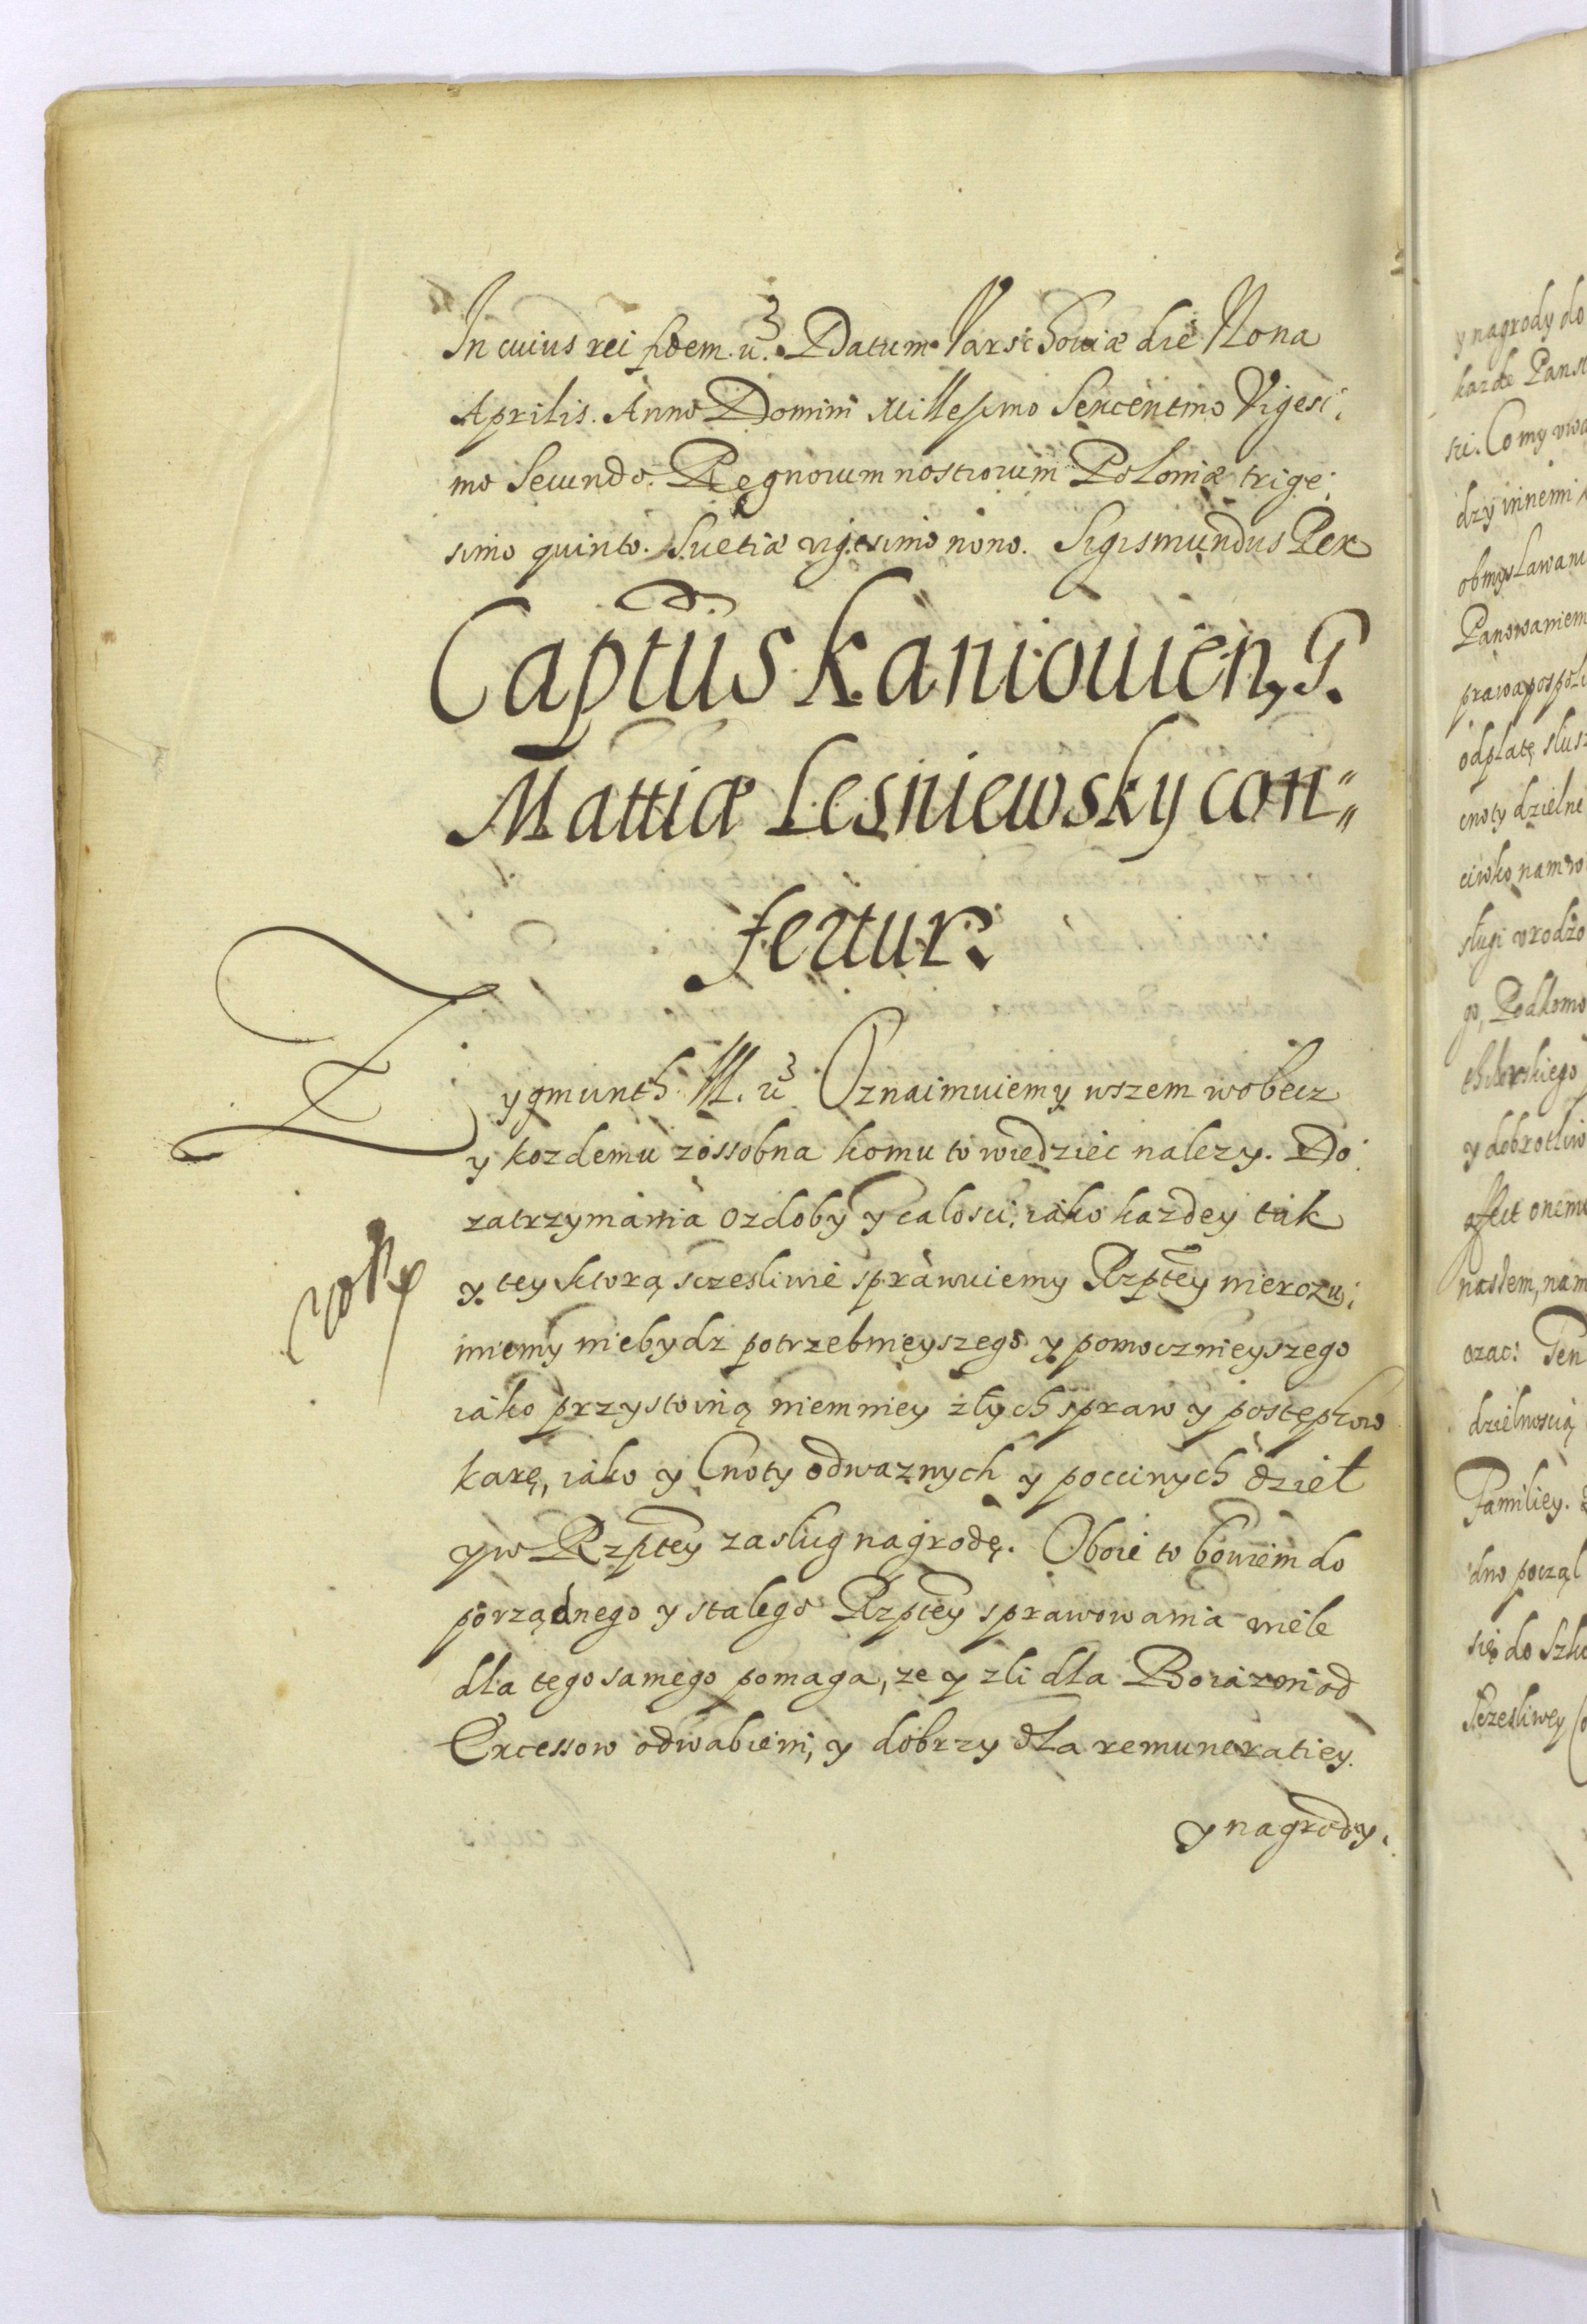 In cuius rei fidem. etc. Datum Varschoviæ die Nona
Aprilis. Anno Domini Millesimo Sexcentmo Vigesi:
mo Secundo. Regnorum nostrorum Poloniæ trige:
simo quinto. Suetiæ vigesimo nono. Sigismundus Rex
Captûs Kaniouien, G.
Mattiæ Lesniewsky con„
fertur.
Zygmunth III. etc Oznaimuiemy wszem wobecz
y kozdemu zossobna komu to wiedziec nalezy. Do
zatrzymania ozdoby y calosci, iako kazdey tak
y tey ktorą sczesliwie sprawuiemy Rzptey nierozu:
miemy niebydz potrzebnieyszego y pomocznieyszego
iako przystoiną niemniey złych spraw y postępkow
karę, iako y Cnoty odwaznych y pocciwych dzieł
y w Rzptey zasług nagrodę. Oboie to bowiem do
porządnego y stalego Rzptey sprawowania wiele
dla tego samego pomaga, ze y zli dla Boiazni od
Excessow odwabieni, y dobrzy dla remuneratiey.
y nagrody.
y nagrody do
kazde Panst
sci. Co my uwa
dzy innemi
obmyslawani
Panowaniem
prawa pospoli
odpłatę slusz
cnoty dzielne
ciwko nam
sługi vrodzo
go, Podkomo
y dobrotliw
affect onemu
naszem, nam
ozac: Ten
dzielnoscią
Familiey.
dno począł
się do Szko
Sczesliwey